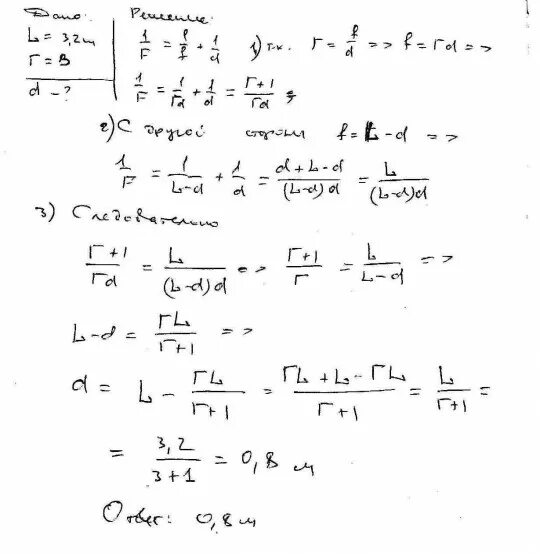 Дано:
L = 3,2м
Г = 3
d - ?
Решение:
1/F = 1/f + 1/d 1) т.к. Г = f/d => f = Гd =>
1/F = 1/Гd + 1/d = Г+1/Гd ;
2) С другой стороны f = L-d =>
1/F = 1/L-d + 1/d = d+L-d/(L-d)d = L/(L-d)d
3) Следовательно
Г+1/Гd = L/(L-d)d => Г+1/Г = L/L-d =>
L-d = ГL/Г+1 =>
d = L - ГL/Г+1 = ГL+L-ГL/Г+1 = L/Г+1 =
= 3,2/3+1 = 0,8 м
Ответ: 0,8м